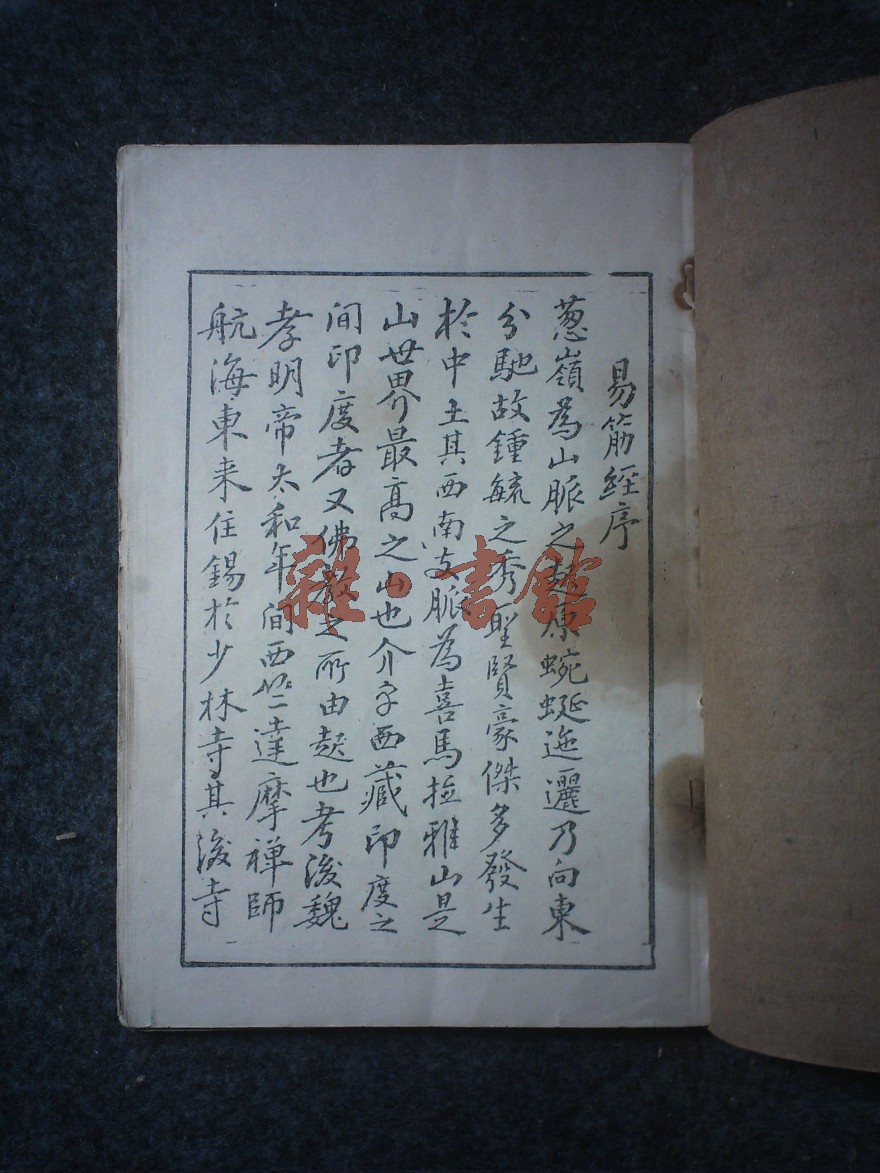 易筋經序
蔥嶺為山脈之起原蜿蜒迤邐乃向東
分馳故鍾毓之秀聖賢豪傑多發生
於中土其西南支脈為喜馬拉雅山是
山世界最高之山也介乎西藏印度之
间印度者又佛教之所由起也考後魏
孝明帝太和年间西竺達摩禅師
航海東来住錫於少林寺其後寺
雜·書館